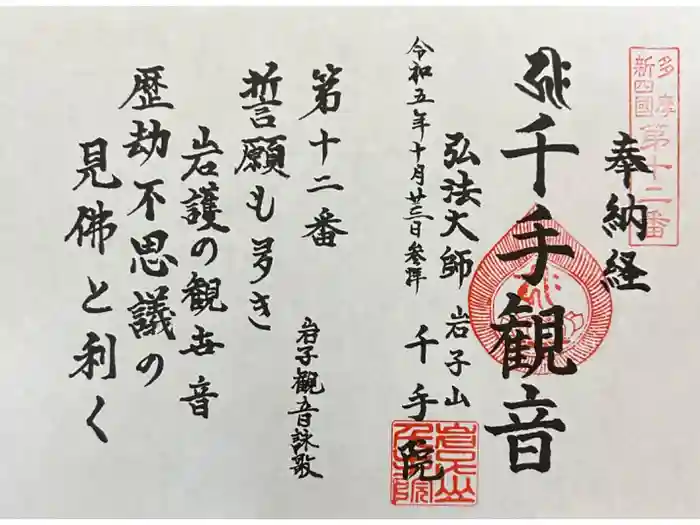 多摩
新四國
第十二番
奉納経
千手観音
弘法大師
岩子山
千手院
令和五年十月廿三日参拝
第十二番
誓願も多き
岩護の観世音
歴劫不思議の
見佛と利く
岩子観音詠歌